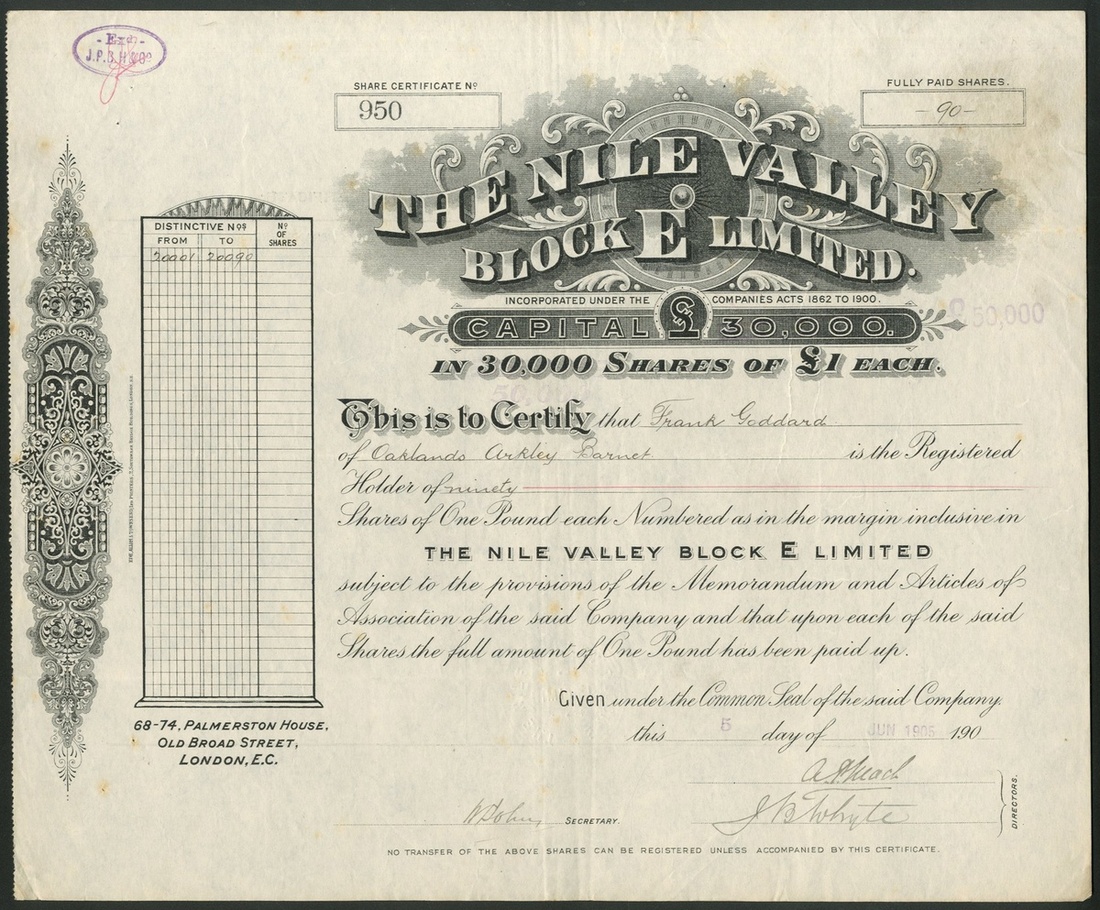 - Exd. -
J.P.B.H & Co
SHARE CERTIFICATE Nº
950
FULLY PAID SHARES.
- 90 -
THE NILE VALLEY
BLOCK E LIMITED.
INCORPORATED UNDER THE COMPANIES ACTS 1862 TO 1900.
CAPITAL £ 30,000.
£50,000
IN 30,000 SHARES OF £1 EACH.
DISTINCTIVE NOS
FROM TO
Nº OF SHARES
20001 20090
This is to Certify that Frank Goddard
of Oaklands Arkley Barnet is the Registered
Holder of ninety
Shares of One Pound each Numbered as in the margin inclusive in
THE NILE VALLEY BLOCK E LIMITED
subject to the provisions of the Memorandum and Articles of
Association of the said Company and that upon each of the said
Shares the full amount of One Pound has been paid up.
Given under the Common Seal of the said Company.
this 5 day of JUN 1905 190
68-74, PALMERSTON HOUSE,
OLD BROAD STREET,
LONDON, E.C.
J B Whyte
DIRECTORS.
SECRETARY.
NO TRANSFER OF THE ABOVE SHARES CAN BE REGISTERED UNLESS ACCOMPANIED BY THIS CERTIFICATE.